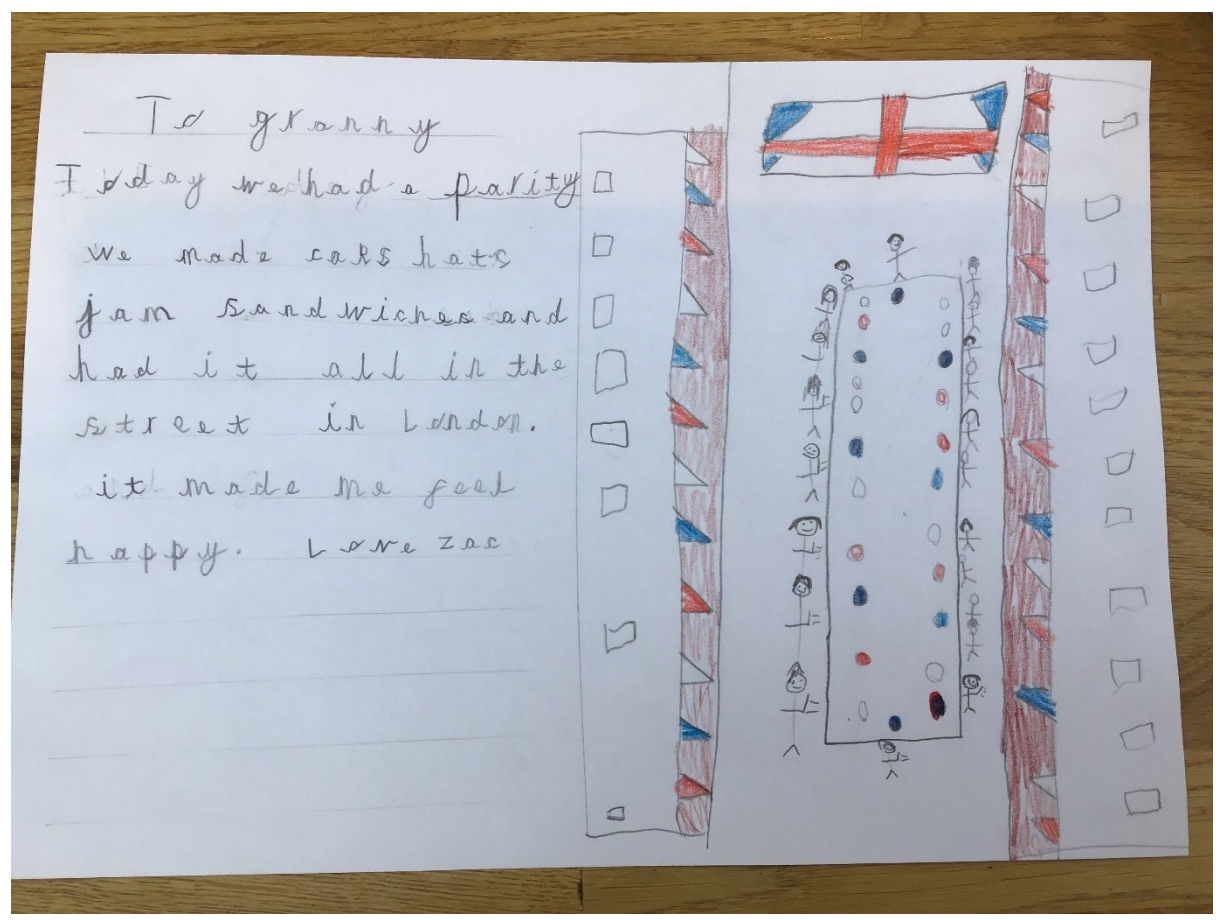 To granny
Today we had a parity
we made caks hats
jam sandwiches and
had it all in the
street in London.
it made me feel
happy. Love zac